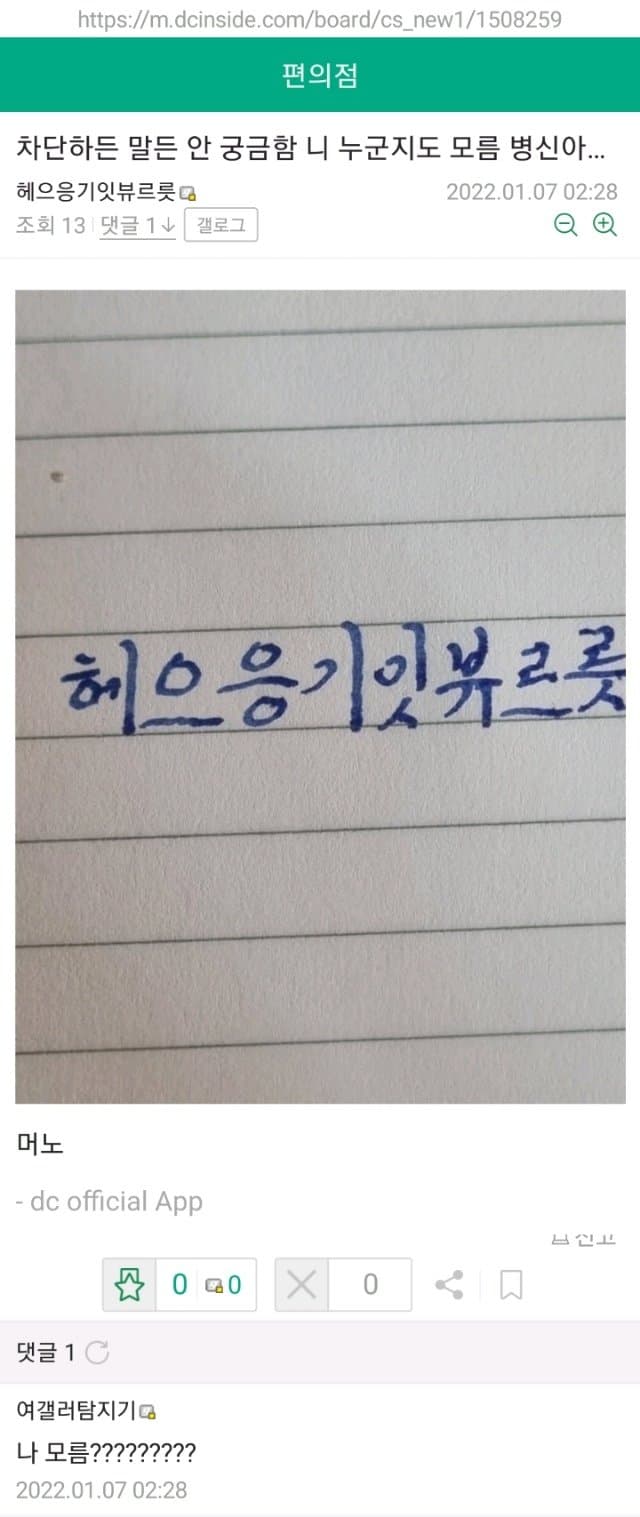 https://m.dcinside.com/board/cs_new1/1508259
편의점
차단하든 말든 안 궁금함 니 누군지도 모름 병신아...
헤으응기잇뷰르릇 2022.01.07 02:28
조회 13 댓글 1↓ 갤로그
헤으응기잇뷰르릇
머노
- dc official App
신고
0 0 0
댓글 1
여갤러탐지기
나 모름?????????
2022.01.07 02:28